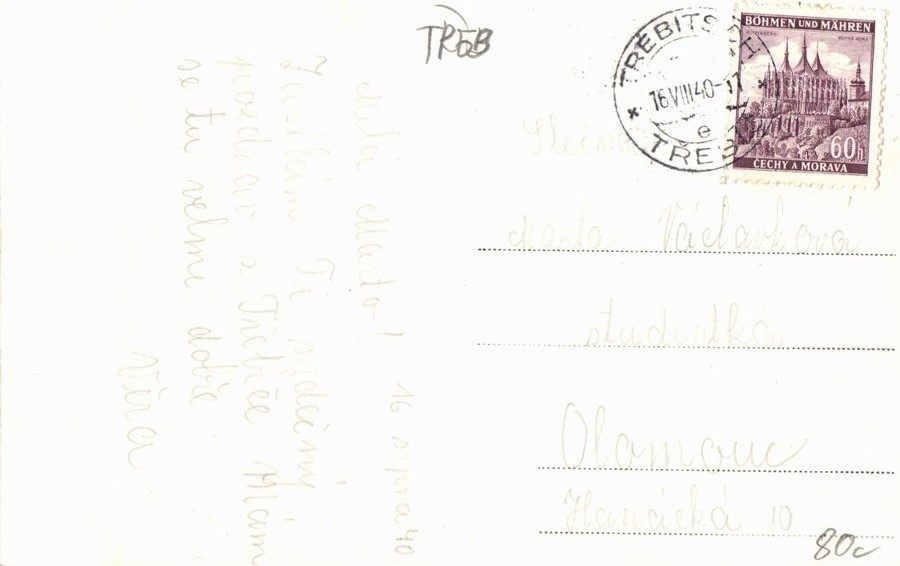 TŘEB
TREBITSCH
16 VIII 40-17
e
TŘEB
BÖHMEN UND MÄHREN
KUTTENBERG KUTNÁ HORA
60h
ČECHY A MORAVA
Milá Marto!
16 srpna 40
Zasílám Ti srdečný
pozdrav z Třebíče. Mám
se tu velmi dobře
Věra
Slečna
Marta Václavková
studentka
Olomouc
Hanácká 10
80c